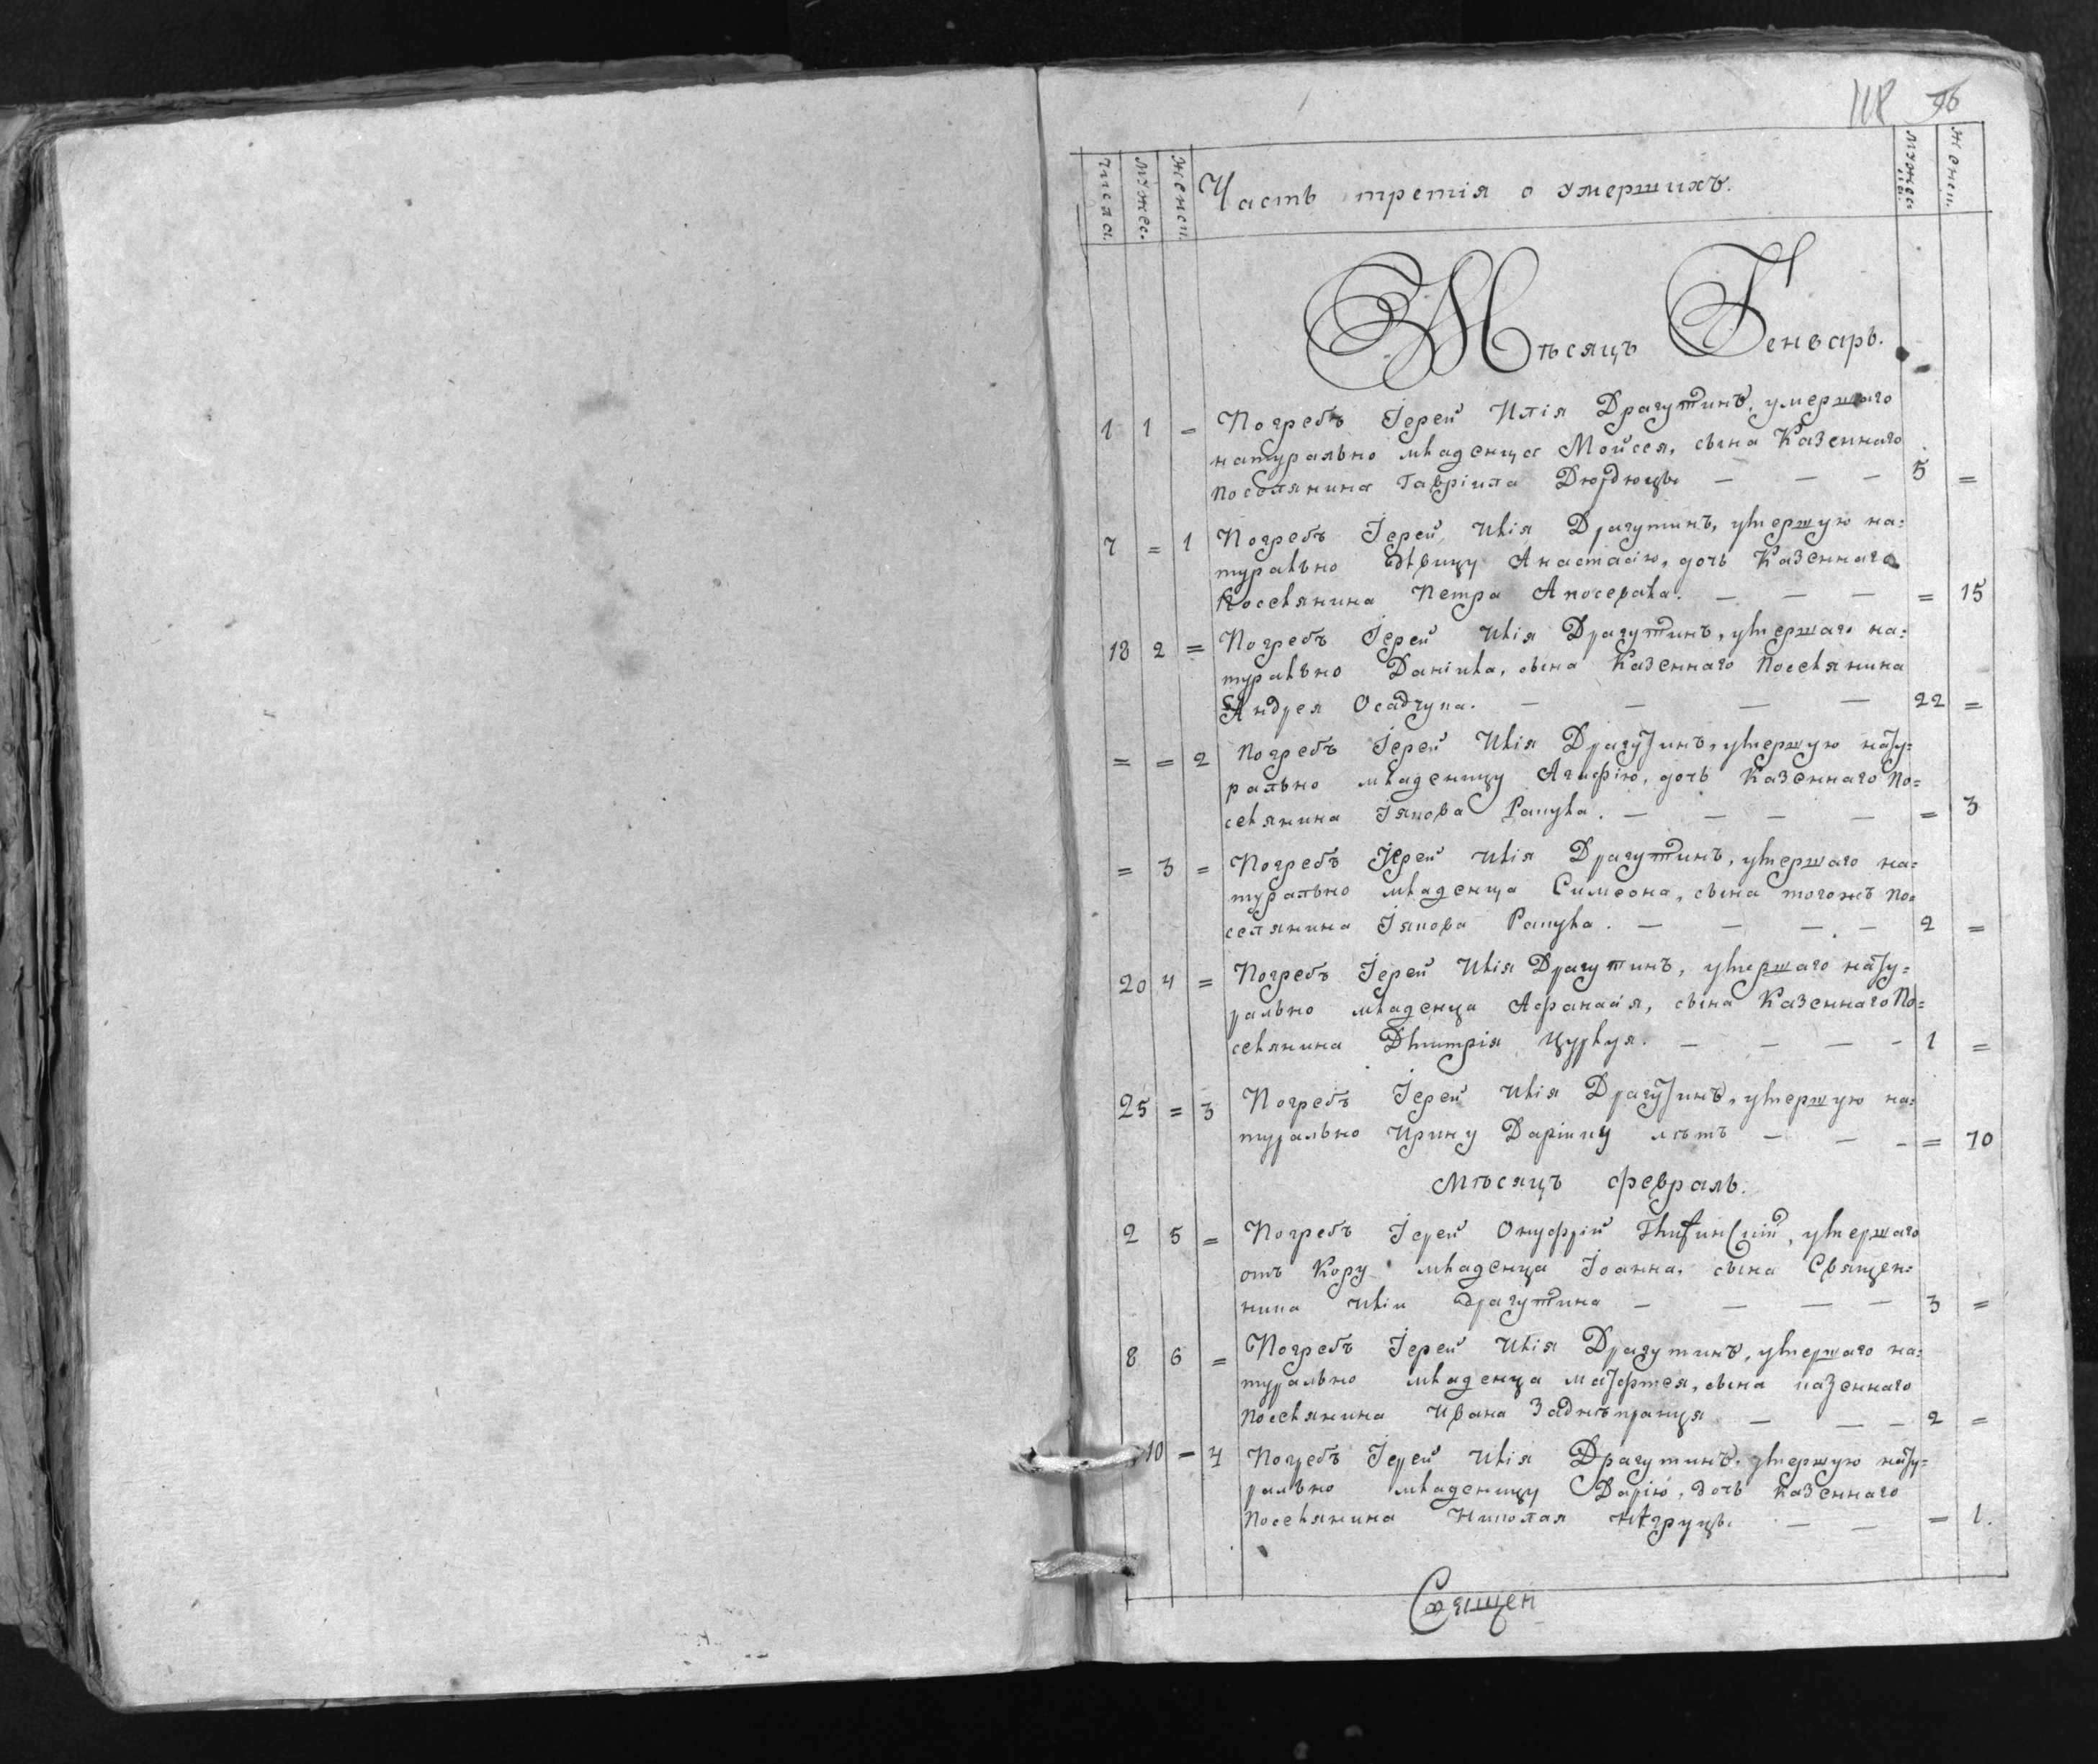 118 76
числа. мужес. женск. Часть третія о умершихъ. мужеск. женск.
Мѣсяцъ Генварь.
1 1 = Погребъ Іерей Илія Драгутинъ, умершаго
натурально младенца Мойсея, сына Казеннаго
поселянина Гавріила Дюрдюцы — — — 5 =
7 = 1 Погребъ Іерей Илія Драгутинъ, умершую на=
турально дѣвицу Анастасію, дочь Казеннаго
поселянина Петра — — — = 15
13 2 = Погребъ Іерей Илія Драгутинъ, умершаго на=
турально Даніила, сына Казеннаго поселянина
Андрея Осадчука. — — — — 22 =
= = 2 Погребъ Іерей Илія Драгутинъ, умершую нату=
рально младеницу Агафію, дочь Казеннаго по=
селянина Іякова . — — — — = 3
= 3 = Погребъ Іерей Илія Драгутинъ, умершаго на=
турально младенца Симеона, сына тогожъ по=
селянина Іякова . — — — — 2 =
20 4 = Погребъ Іерей Илія Драгутинъ, умершаго нату=
рально младенца Афанасія, сына Казеннаго По=
селянина Дмитрія Цуркуя. — — — — 1 =
25 = 3 Погребъ Іерей Илія Драгутинъ, умершую на=
турально Ирину лѣтъ — — — = 70
Мѣсяцъ февраль.
2 5 = Погребъ Іерей Онуфрій , умершаго
отъ Кору младенца Іоанна, сына Священ=
ника Иліи Драгутина — — — — 3 =
8 6 = Погребъ Іерей Илія Драгутинъ, умершаго на=
турально младенца Матфтея, сына казеннаго
поселянина Ивана Заднѣпранця — — — 2 =
10 = 4 Погребъ Іерей Илія Драгутинъ, умершую нату=
рально младеницу Дарію, дочь казеннаго
поселянина Николая — — = 1.
Священ